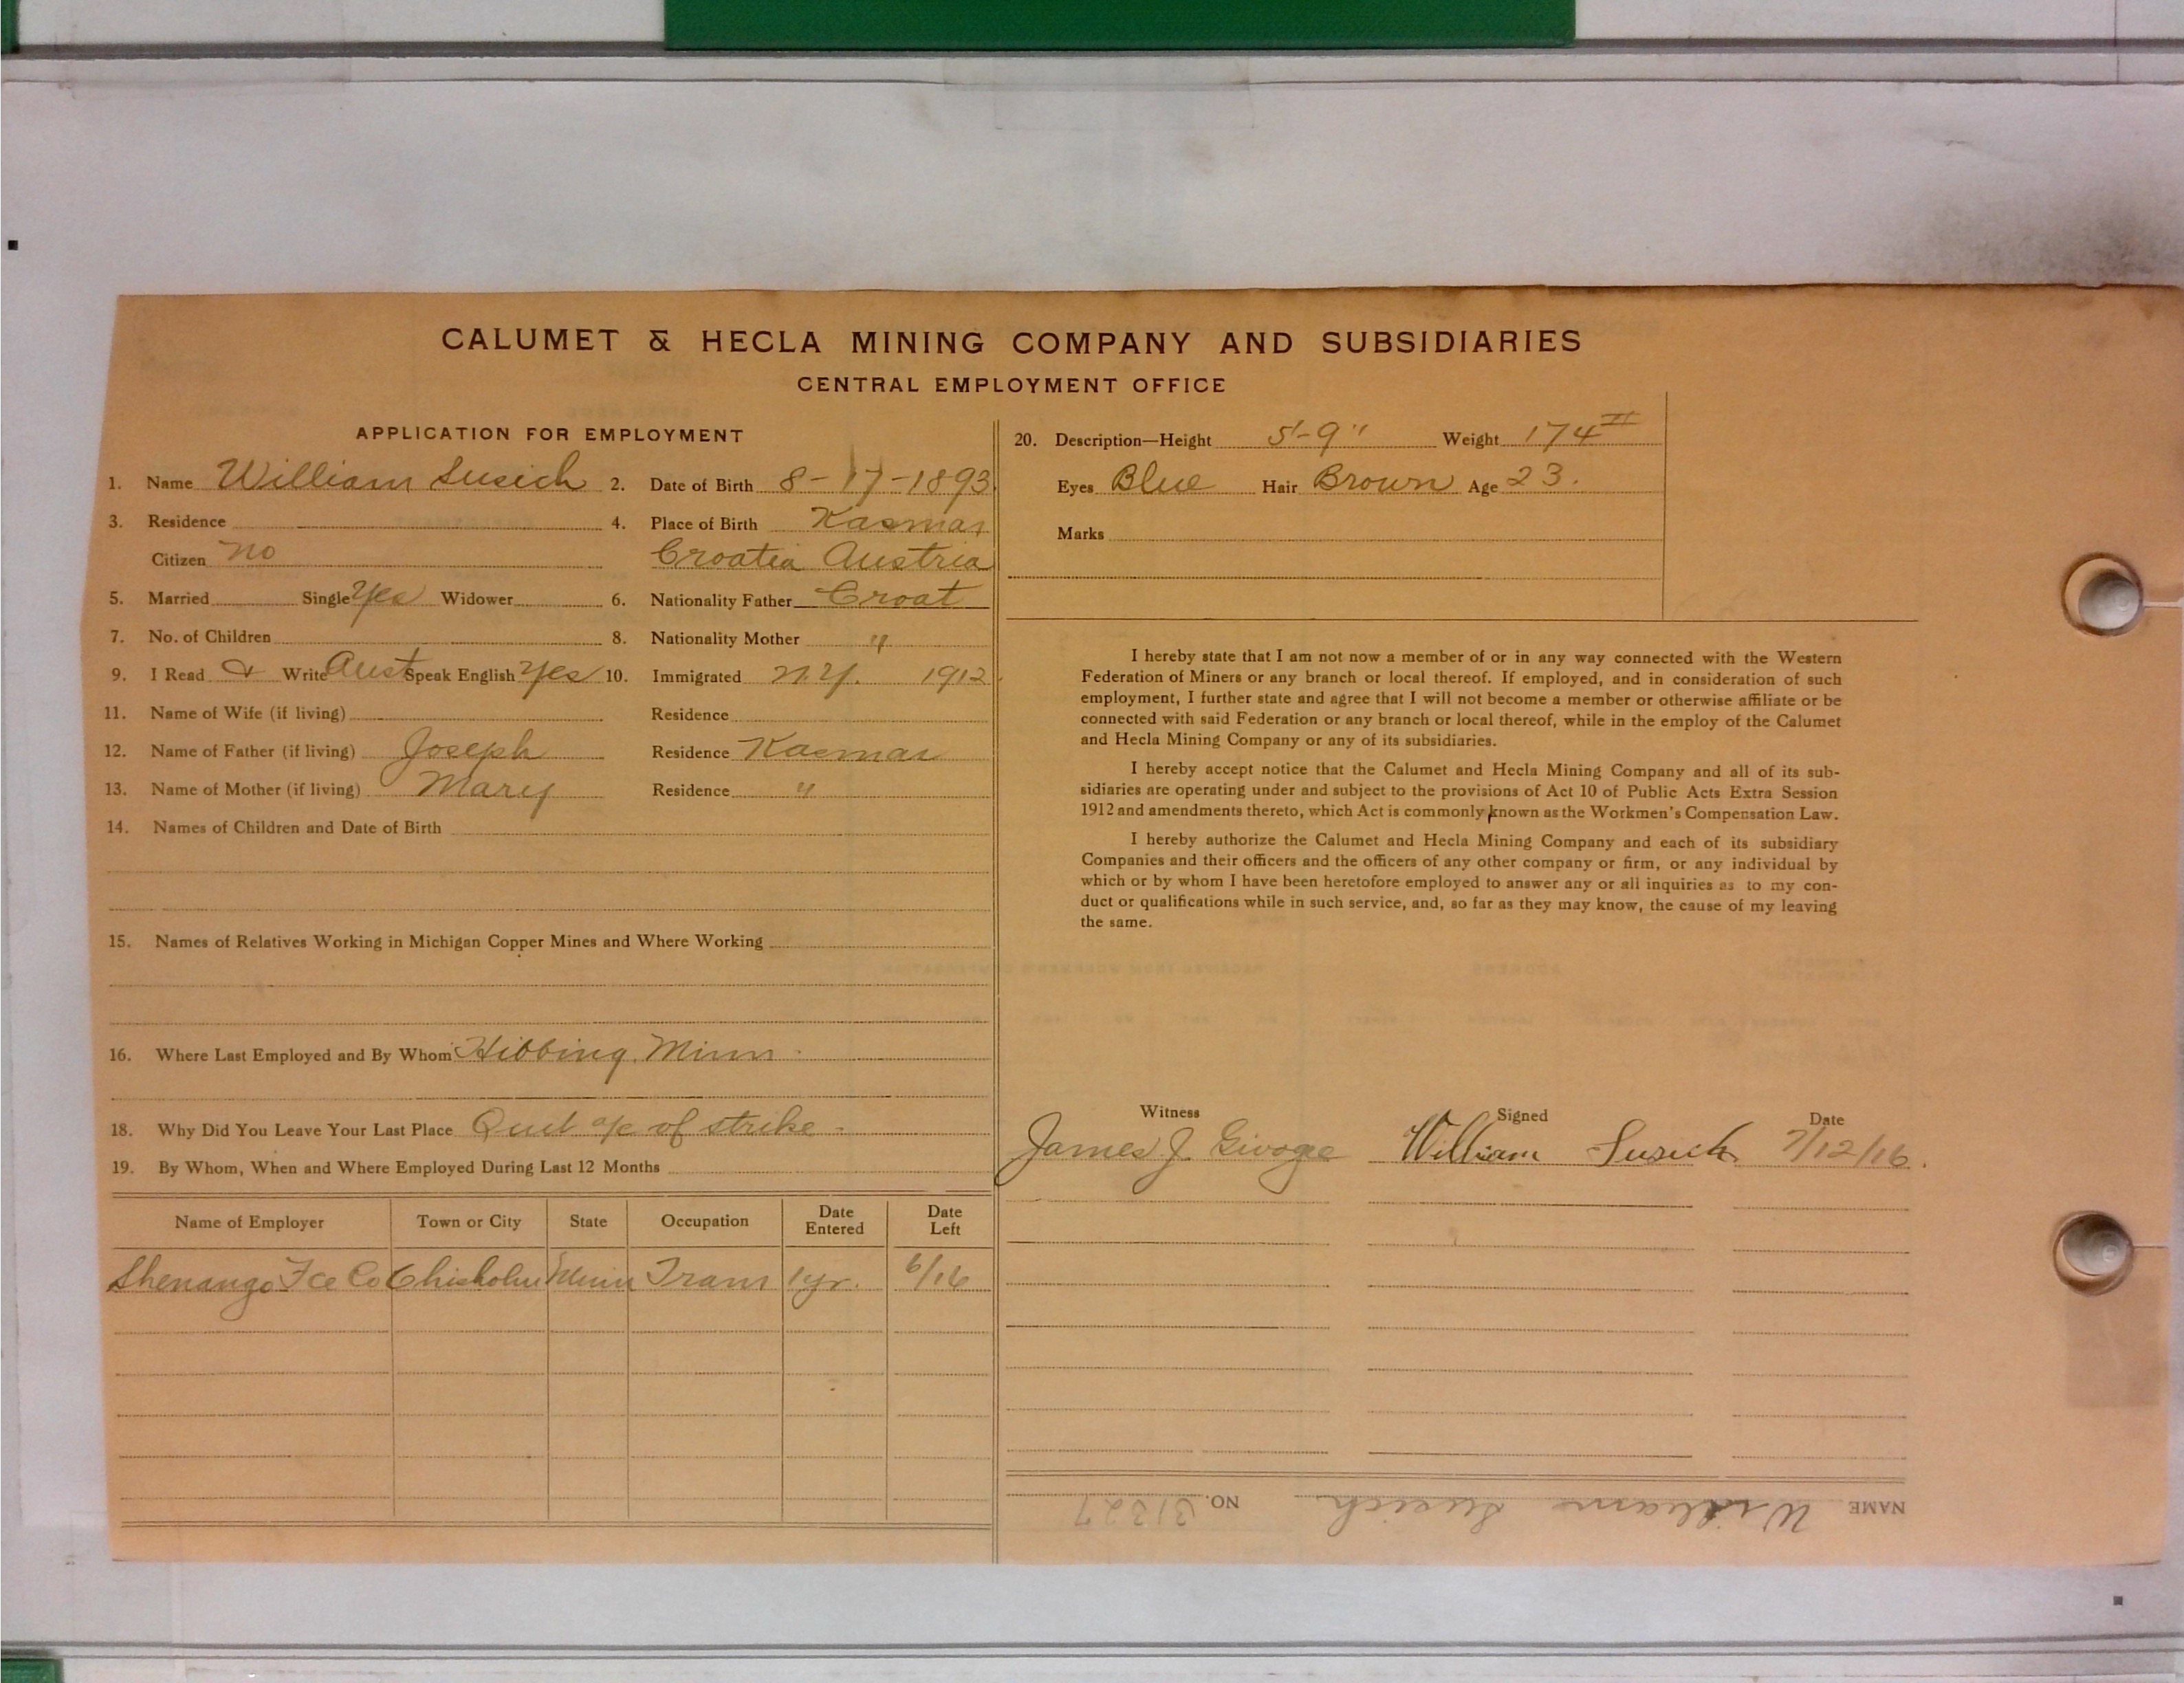 CALUMET & HECLA MINING COMPANY AND SUBSIDIARIES
CENTRAL EMPLOYMENT OFFICE
APPLICATION FOR EMPLOYMENT
1. Name William Susich 2. Date of Birth 8-17-1893
3. Residence 4. Place of Birth Kasmar
Citizen no Croatia Austria
5. Married Single Yes Widower 6. Nationality Father Croat
7. No. of Children 8. Nationality Mother "
9. I Read & Write Aust Speak English Yes 10. Immigrated N.Y. 1912
11. Name of Wife (if living) Residence
12. Name of Father (if living) Joseph Residence Kasmar
13. Name of Mother (if living) Mary Residence "
14. Names of Children and Date of Birth
15. Names of Relatives Working in Michigan Copper Mines and Where Working
16. Where Last Employed and By Whom Hibbing, Minn
18. Why Did You Leave Your Last Place Quit a/c of strike
19. By Whom, When and Where Employed During Last 12 Months
Name of Employer Town or City State Occupation Date Entered Date Left
Shenango Fce Co Chisholm Minn Tram 1 yr. 6/16
20. Description—Height 5'-9" Weight 174
Eyes Blue Hair Brown Age 23.
Marks
I hereby state that I am not now a member of or in any way connected with the Western
Federation of Miners or any branch or local thereof. If employed, and in consideration of such
employment, I further state and agree that I will not become a member or otherwise affiliate or be
connected with said Federation or any branch or local thereof, while in the employ of the Calumet
and Hecla Mining Company or any of its subsidiaries.
I hereby accept notice that the Calumet and Hecla Mining Company and all of its sub-
sidiaries are operating under and subject to the provisions of Act 10 of Public Acts Extra Session
1912 and amendments thereto, which Act is commonly known as the Workmen's Compensation Law.
I hereby authorize the Calumet and Hecla Mining Company and each of its subsidiary
Companies and their officers and the officers of any other company or firm, or any individual by
which or by whom I have been heretofore employed to answer any or all inquiries as to my con-
duct or qualifications while in such service, and, so far as they may know, the cause of my leaving
the same.
Witness Signed Date
James J. William Susich 7/12/16.
NAME William Susich NO. 31327